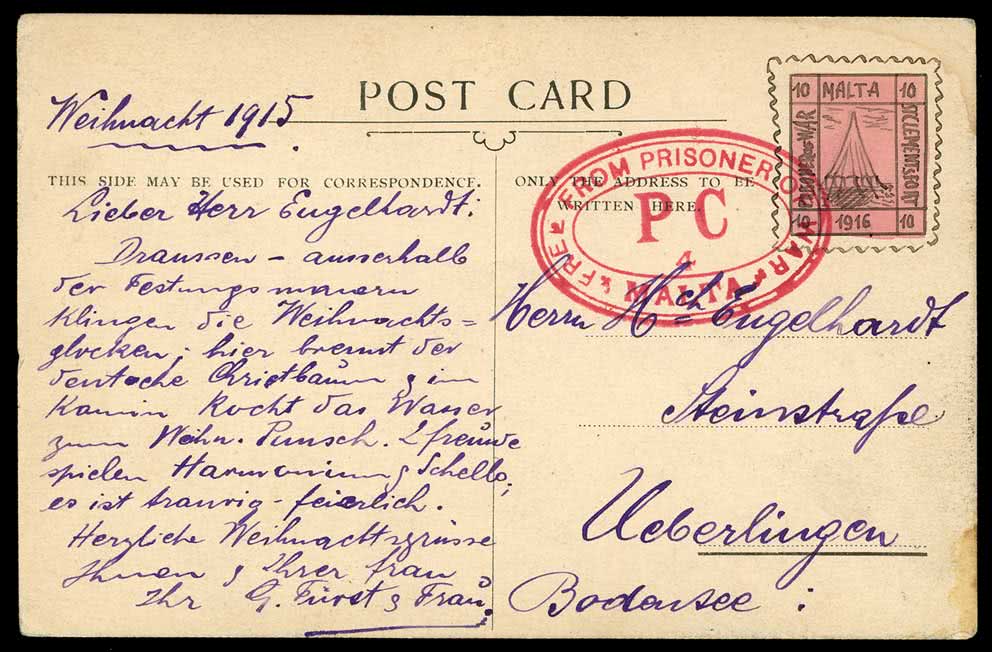 POST CARD
Weihnacht 1915.
THIS SIDE MAY BE USED FOR CORRESPONDENCE.
Lieber Herr Engelhardt:
Draussen – ausserhalb
der Festungsmauern
klingen die Weihnachts=
glocken; hier brennt der
deutsche Christbaum & im
Kamin kocht das Wasser
zum Weihn. Punsch. 2 freunde
spielen Harmonium & Schello;
es ist traurig – feierlich.
Herzliche Weihnachtsgrüsse
Ihnen & Ihrer frau
Ihr G. Fürst & Frau.
ONLY THE ADDRESS TO BE
WRITTEN HERE.
FREE FROM PRISONER OF WAR
P C
4
MALTA
10 MALTA 10
PRISONER OF WAR
ST CLEMENTS FORT
10 1916 10
Herrn Hch Engelhardt
Steinstraße
Ueberlingen
Bodensee :